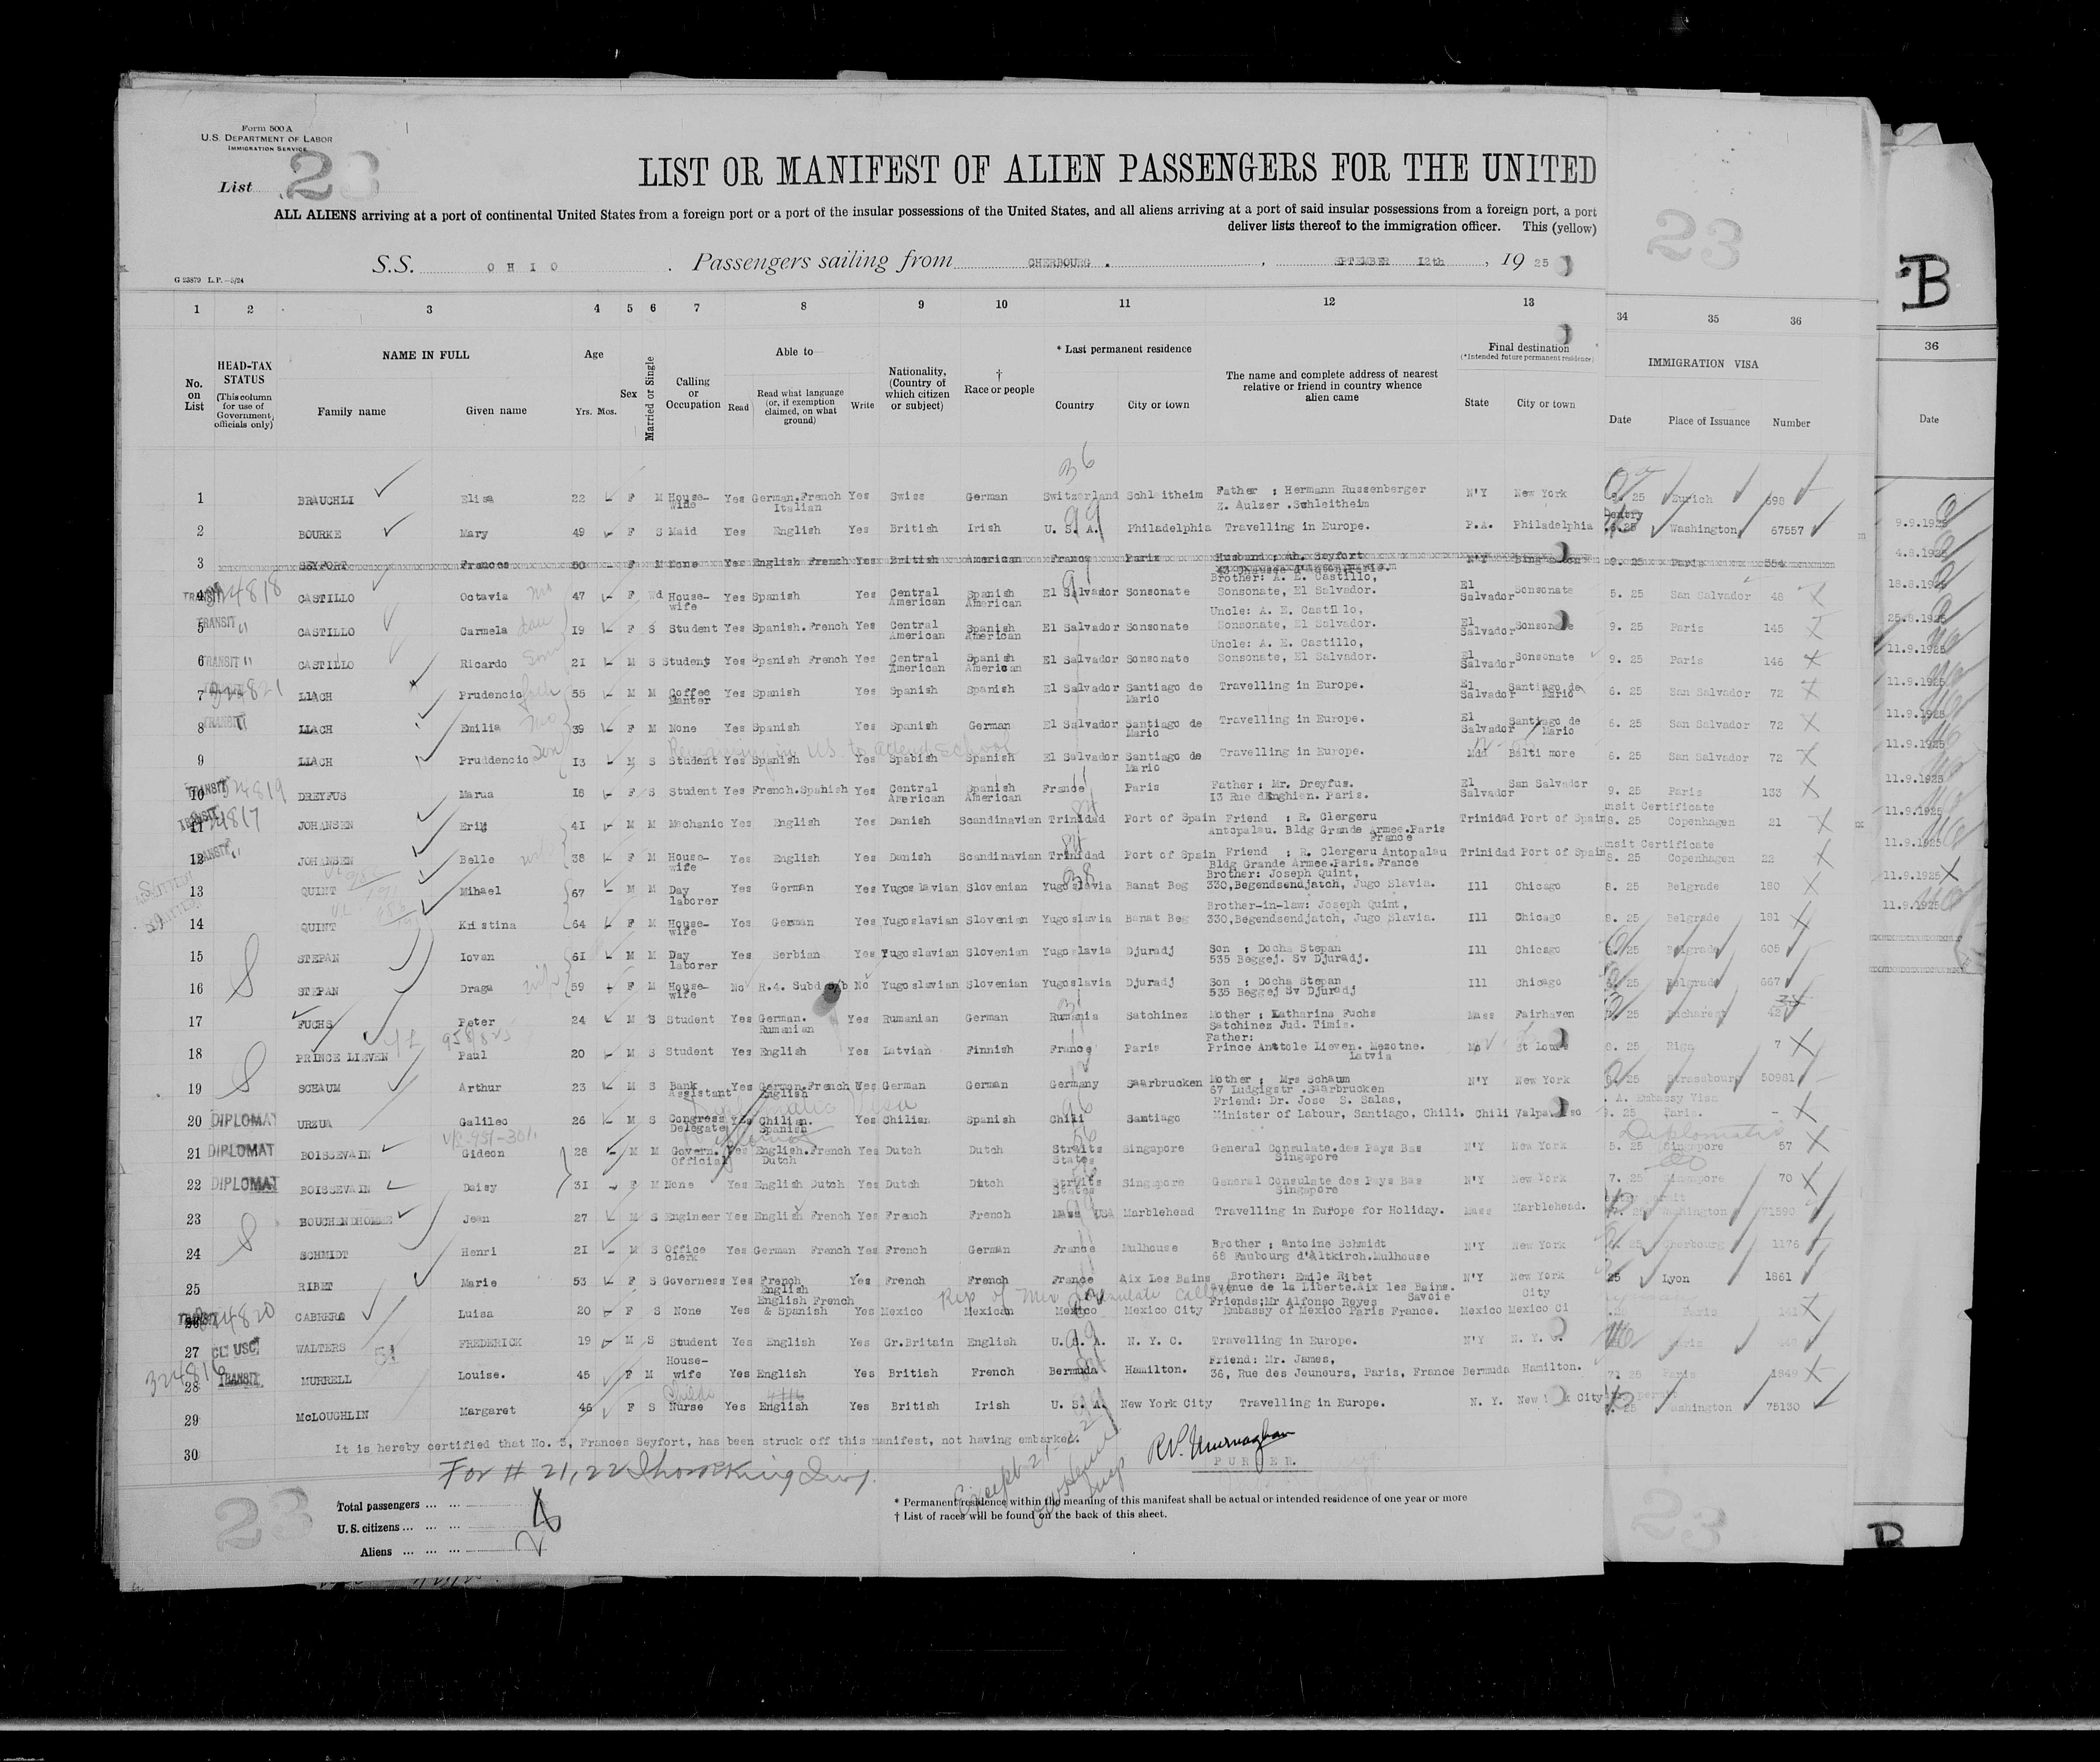 Form 500 A
U.S. DEPARTMENT OF LABOR
IMMIGRATION SERVICE
List 23
LIST OR MANIFEST OF ALIEN PASSENGERS FOR THE UNITED
ALL ALIENS arriving at a port of continental United States from a foreign port or a port of the insular possessions of the United States, and all aliens arriving at a port of said insular possessions from a foreign port, a port
deliver lists thereof to the immigration officer. This (yellow)
S.S. OHIO . Passengers sailing from CHERBOURG . , SPTEMBER 12th , 19 25
G 23879 L.P.—5/24
23
B
1 2 3 4 5 6 7 8 9 10 11 12 13 34 35 36
36
No. on List
HEAD-TAX STATUS (This column for use of Government officials only)
NAME IN FULL
Family name Given name
Age
Yrs. Mos.
Sex
Married or Single
Calling or Occupation
Able to
Read Read what language (or, if exemption claimed, on what ground) Write
Nationality, (Country of which citizen or subject)
† Race or people
* Last permanent residence
Country City or town
The name and complete address of nearest relative or friend in country whence alien came
Final destination
(*Intended future permanent residence)
State City or town
IMMIGRATION VISA
Date Place of Issuance Number
Date
1 BRAUCHLI Elisa 22 F M House-wide Yes German.French Italian Yes Swiss German Switzerland Schleitheim Father : Hermann Russenberger Z. Aulzer .Schleitheim N'Y New York 9. 25 Zurich 698
2 BOURKE Mary 49 F S Maid Yes English Yes British Irish U. S. A. Philadelphia Travelling in Europe. P.A. Philadelphia Washington 67557
3 SEYFORT Frances 50 F M None Yes English French Yes British American France Paris Husband : Ah. Seyfort N'Y 9. 25 Paris 554
4 TRANSIT 324818 CASTILLO Octavia 47 F Wd House-wife Yes Spanish Yes Central American Spanish American El Salvador Sonsonate Brother: A. E. Castillo, Sonsonate, El Salvador. El Salvador Sonsonate 5. 25 San Salvador 48
5 TRANSIT CASTILLO Carmela 19 F S Student Yes Spanish.French Yes Central American Spanish American El Salvador Sonsonate Uncle: A. E. Castillo, Sonsonate, El Salvador. El Salvador Sonsonate 9. 25 Paris 145
6 TRANSIT CASTILLO Ricardo Son 21 M S Student Yes Spanish French Yes Central American Spanish American El Salvador Sonsonate Uncle: A. E. Castillo, Sonsonate, El Salvador. El Salvador Sonsonate 9. 25 Paris 146
7 324821 LLACH Prudencio 55 M M Coffee Planter Yes Spanish Yes Spanish Spanish El Salvador Santiago de Mario Travelling in Europe. El Salvador Santiago de Mario 6. 25 San Salvador 72
8 TRANSIT LLACH Emilia 39 F M None Yes Spanish Yes Spanish German El Salvador Santiago de Mario Travelling in Europe. El Salvador Santiago de Mario 6. 25 San Salvador 72
Remaining in U.S. to attend school
9 LLACH Prudencio Son 13 M S Student Yes Spanish Yes Spabish Spanish El Salvador Santiago de Mario Travelling in Europe. Mdd Balti more 6. 25 San Salvador 72
10 TRANSIT 324819 DREYFUS Marua 18 F S Student Yes French.Spanish Yes Central American Spanish American France Paris Father : Mr. Dreyfus. 13 Rue dEnghien. Paris. El Salvador San Salvador 9. 25 Paris 133
11 TRANSIT 24817 JOHANSEN Erik 41 M M Mechanic Yes English Yes Danish Scandinavian Trinidad Port of Spain Friend : R. Clergeru Antopalau. Bldg Grande Armee.Paris France Trinidad Port of Spain nsit Certificate 8. 25 Copenhagen 21
12 TRANSIT JOHANSEN Belle wife 38 F M House-wife Yes English Yes Danish Scandinavian Trinidad Port of Spain Friend : R. Clergeru Antopalau Bldg Grande Armee.Paris.France Trinidad Port of Spain nsit Certificate 8. 25 Copenhagen 22
13 QUINT Mihael 67 M M Day laborer Yes German Yes Yugoslavian Slovenian Yugoslavia Banat Beg Brother: Joseph Quint, 330,Begendsendjatch, Jugo Slavia. Ill Chicago 8. 25 Belgrade 180
14 QUINT Kristina 64 F M House-wife Yes German Yes Yugoslavian Slovenian Yugoslavia Banat Beg Brother-in-law: Joseph Quint, 330,Begendsendjatch, Jugo Slavia. Ill Chicago 8. 25 Belgrade 181
15 STEPAN Iovan 61 M M Day laborer Yes Serbian Yes Yugoslavian Slovenian Yugoslavia Djuradj Son : Docha Stepan 535 Beggej. Sv Djuradj. Ill Chicago 25 Belgrade 605
16 STEPAN Draga wife 59 F M House-wife No R.4. Subd No Yugoslavian Slovenian Yugoslavia Djuradj Son : Docha Stepan 535 Beggej Sv Djuradj Ill Chicago 25 Belgrade 667
17 FUCHS Peter 24 M S Student Yes German. Rumanian Yes Rumanian German Rumania Satchinez Mother : Katharina Fuchs Satchinez Jud. Timis. Mass Fairhaven 25 Bucharest
18 PRINCE LIEVEN Paul 20 M S Student Yes English Yes Latvian Finnish France Paris Father: Prince Anatole Lieven. Mezotne. Latvia Mo St Louis 8. 25 Riga 7
19 SCHAUM Arthur 23 M S Bank Assistant Yes German.French English Yes German German Germany Saarbrucken Mother : Mrs Schaum 67 Ludgigstr .Saarbrucken N'Y New York 25 Strassbourg 50981
20 DIPLOMAT URZUA Galileo 26 M S Congress Delegate Yes Chilian. Spanish Yes Chilian Spanish Chili Santiago Friend: Dr. Jose S. Salas, Minister of Labour, Santiago, Chili. Chili Valparaiso A. Embassy Visa 25 Paris. -
Diplomatic Visa
21 DIPLOMAT BOISSEVAIN Gideon 28 M M Govern. Official Yes English.French Dutch Yes Dutch Dutch Straits States Singapore General Consulate.des Pays Bas Singapore N'Y New York 5. 25 Singapore 57
22 DIPLOMAT BOISSEVAIN Daisy 31 F M None Yes English Dutch Yes Dutch Dutch Straits States Singapore General Consulate des Pays Bas Singapore N'Y New York 7. 25 Singapore 70
23 BOUCHENDHOMME Jean 27 M S Engineer Yes English French Yes French French Mass USA Marblehead Travelling in Europe for Holiday. Mass Marblehead. Washington 71590
24 SCHMIDT Henri 21 M S Office clerk Yes German French Yes French German France Mulhouse Brother : Antoine Schmidt 68 Faubourg d'Altkirch.Mulhouse N'Y New York 25 Cherbourg 1176
25 RIBET Marie 53 F S Governess Yes French English Yes French French France Aix Les Bains Brother: Emile Ribet Avenue de la Liberte.Aix les Bains. Savoie N'Y New York City 25 Lyon 1861
26 TRANSIT 324820 CABRERA Luisa 20 F S None Yes English French & Spanish Yes Mexico Mexican Mexico Mexico City Friends;Mr Alfonso Reyes Embassy of Mexico Paris France. Mexico Mexico Ci Paris
27 USC WALTERS FREDERICK 19 M S Student Yes English Yes Gr.Britain English U. S. A. N. Y. C. Travelling in Europe. N'Y N. Y. C. Paris
28 324816 TRANSIT MURRELL Louise. 45 F M House-wife Yes English Yes British French Bermuda Hamilton. Friend: Mr. James, 36, Rue des Jeuneurs, Paris, France Bermuda Hamilton. 25 Paris 1849
29 McLOUGHLIN Margaret 46 F S Nurse Yes English Yes British Irish U. S. A. New York City Travelling in Europe. N. Y. New York City 25 Washington 75130
30 It is hereby certified that No. 3, Frances Seyfort, has been struck off this manifest, not having embarked.
PURSER.
For # 21, 22
Total passengers
U. S. citizens
Aliens
* Permanent residence within the meaning of this manifest shall be actual or intended residence of one year or more
† List of races will be found on the back of this sheet.
23
23
9.9.1925
4.8.1925
18.8.1925
25.8.1925
11.9.1925
11.9.1925
11.9.1925
11.9.1925
11.9.1925
11.9.1925
11.9.1925
11.9.1925
11.9.1925